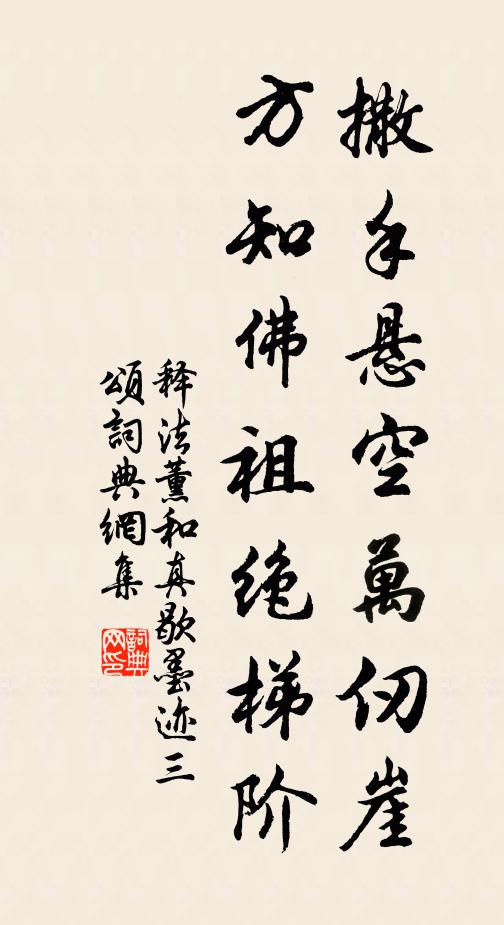 撒手悬空萬仞崖
方知佛祖绝梯阶
释法薰和真歇墨迹三
颂詞典網集
詞典网印